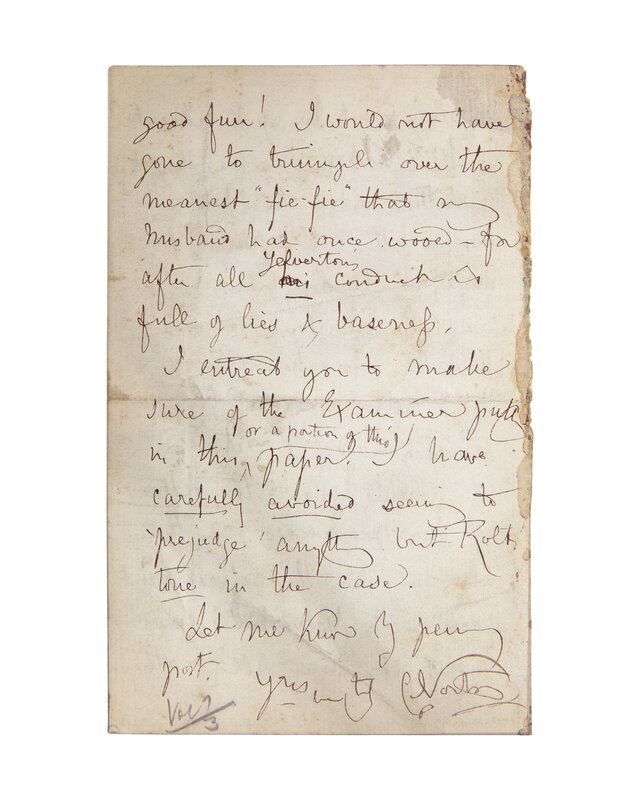 good fun! I would not have
gone to triumph over the
meanest "fie-fie" that my
husband had once wooed - for
after all Yelverton's conduct is
full of lies & baseness.
I entreat you to make
sure of the Examiner putting
in this, or a portion of this, paper. I have
carefully avoided seeming to
'prejudge' anything but Rolt's
tone in the case.
Let me know by penny
post.
Yrs CNorton
Vol 7
3